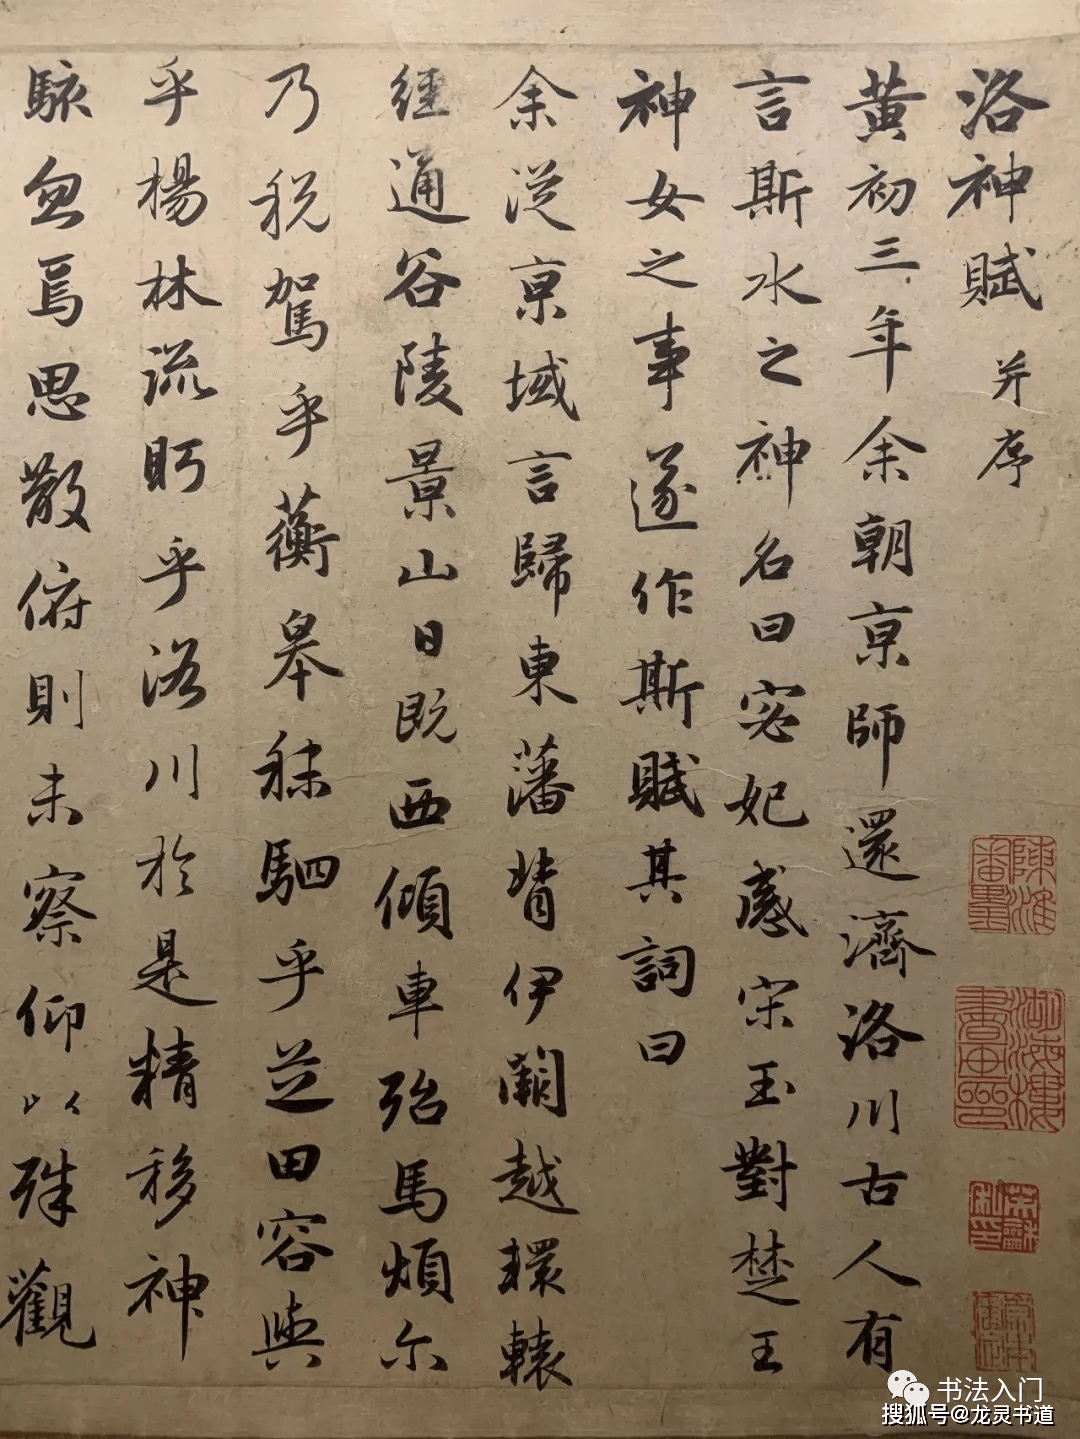 洛神賦 并序
黄初三年余朝京師還濟洛川古人有
言斯水之神名曰宓妃感宋玉對楚王
神女之事遂作斯賦其詞曰
余從京域言歸東藩背伊闕越轘轅
經通谷陵景山日既西傾車殆馬煩尔
乃税駕乎蘅皋秣駟乎芝田容與
乎楊林流眄乎洛川於是精移神
駭忽焉思散俯則未察仰以殊觀
书法入门
搜狐号@龙灵书道